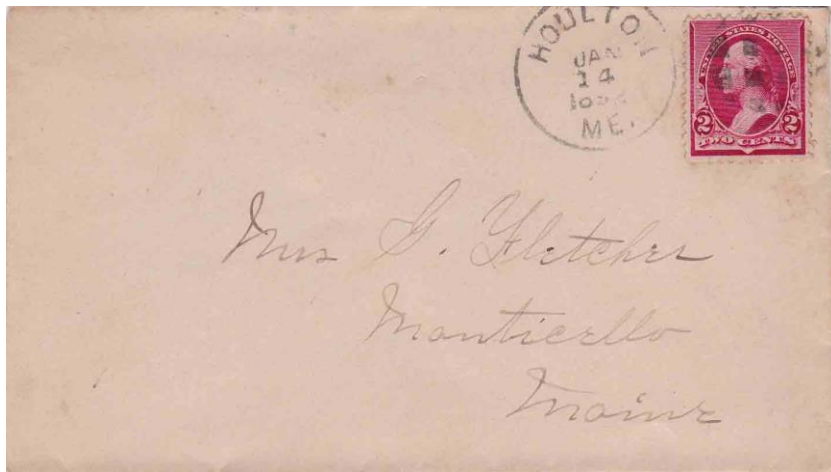 HOULTON
JAN
14
ME.
UNITED STATES POSTAGE
2 2
TWO CENTS
Mrs G. Fletcher
Monticello
Maine